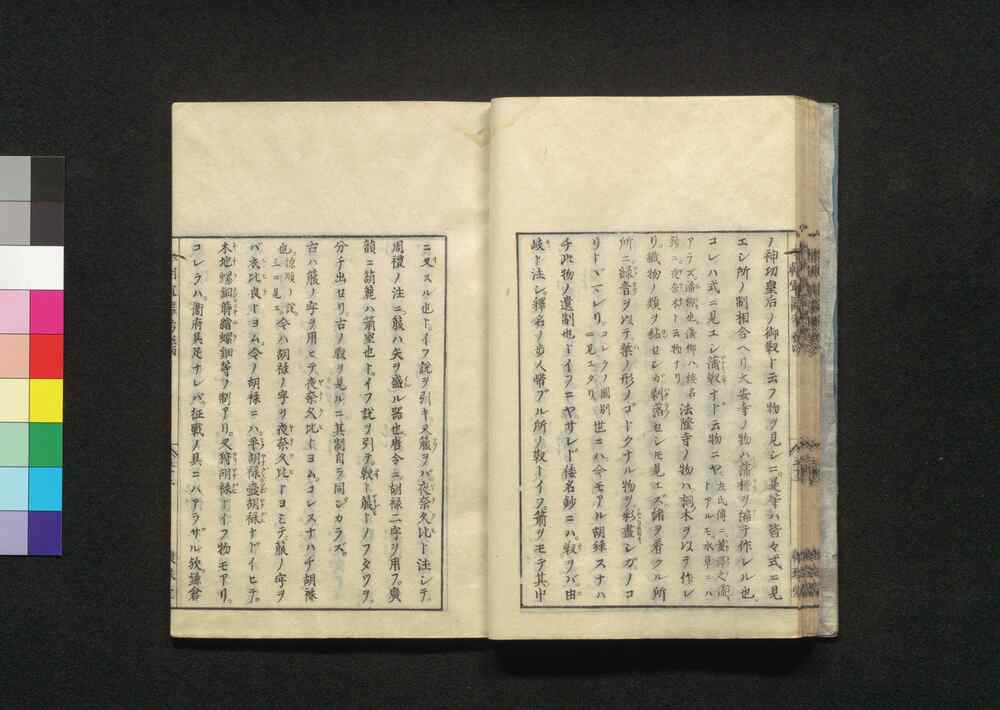 ノ神功皇后ノ御靫ト云フ物ヲ見シニ。是等ハ皆々式ニ見
エシ所ノ制相合ヘリ大安寺ノ物ハ蒲柳ヲ編テ作レル也
コレハ式ニ見エシ蒲靫ナド云物ニヤ
法隆寺ノ物ハ桐木ヲ以テ作レ
リ織物ノ類ヲ粘セシガ剥落セシモ見エズ緒ヲ着クル所
所ニ緑青ヲ以テ葉ノ形ノゴトクナル物ヲ彩畫シカノコ
リトヾマレリ
コレラノ圖別
ニ見エタリ
世ニハ今モアル胡籙スナハ
チ此物ノ遺制也トイフニヤサレド倭名鈔ニハ靫ヲバ由
岐ト注シ釋名ノ歩人帶ブル所ノ靫トイフ箭ヲモテ其中
ニ叉スル也トイフ説ヲ引キ又箙ヲバ夜奈久比ト注シテ
周禮ノ注ニ箙ハ矢ヲ盛ル器也唐令ニ胡祿二字ヲ用フ。廣
韻ニ箶簏ハ箭室也トイフ説ヲ引テ靫ト箙トノフタツヲ
分チ出セリ古ノ靫ヲ見ルニ其制自ラ同シカラズ
古ハ箙ノ字ヲ用ヒテ夜奈久比トヨム。コレスナハチ胡祿
也
令ハ胡祿ノ字ヲ夜奈久比トヨミテ箙ノ字ヲ
バ衣比良トヨム。令ノ胡祿ニハ平胡祿壺胡祿ナドイヒテ。
木地螺鈿蒔繪螺鈿等ノ制アリ。又狩胡祿トイフ物モアリ。
コレラハ衞府具足ナレバ征戰ノ具ニハアラザル歟鎌倉